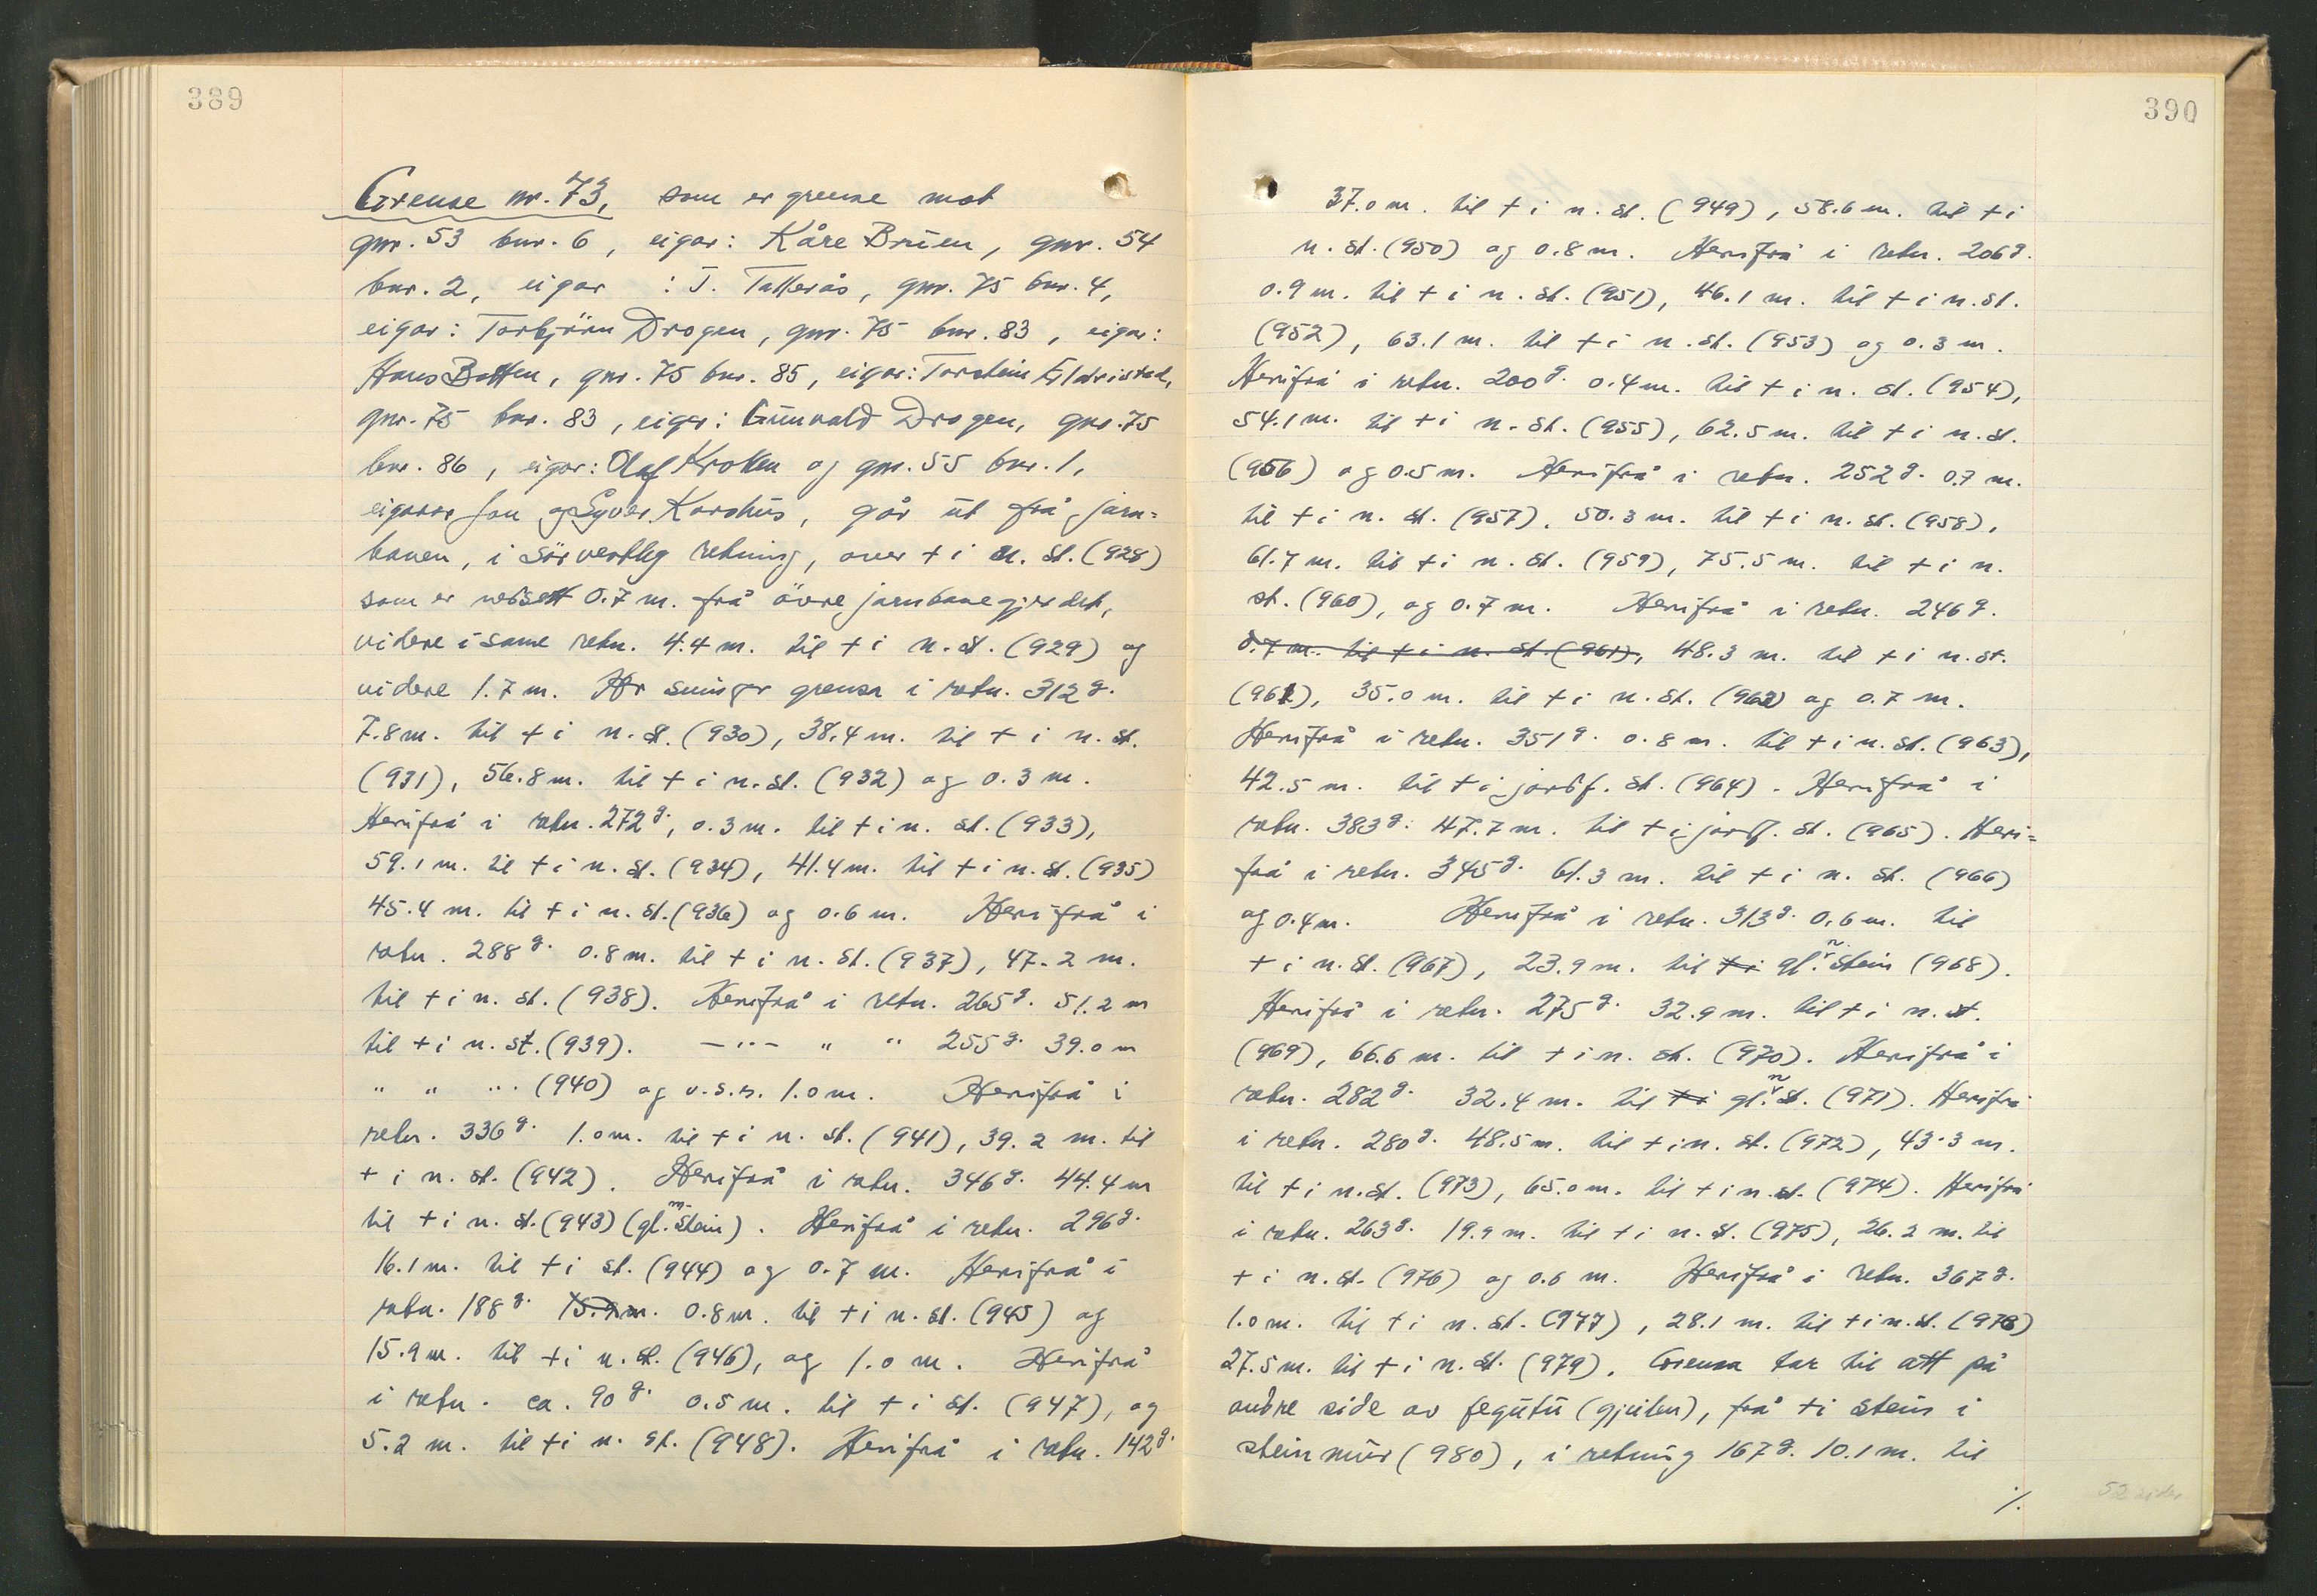 389
Grense nr. 73, som er grense mot
gnr. 53 bnr. 6, eigar: Kåre Bruen, gnr. 54
bnr. 2, eigar : J. Tallerås, gnr. 75 bnr. 4,
eigar: Torbjörn Drogen, gnr. 75 bnr. 83, eigar:
Hans Botten, gnr. 75 bnr. 85, eigar: Torstein Eldristad,
gnr. 75 bnr. 83, eigar: Gunvald Drogen, gnr. 75
bnr. 86, eigar: Olaf Krokken og gnr. 55 bnr. 1,
eigarar Jon og Syver Karshus, går ut frå jarn=
banen, i sörvestleg retning, over + i n. st. (928)
som er nedsett 0.7 m. frå övre jarnbanegjerdet,
videre i same retn. 4.4 m. til + i n. st. (929) og
videre 1.7 m. Her svinger grensa i retn. 312 g.
7.8 m. til + i n. st. (930), 38.4 m. til + i n. st.
(931), 56.8 m. til + i n. st. (932) og 0.3 m.
Herifrå i retn. 272 g., 0.3 m. til + i n. st. (933),
59.1 m. til + i n. st. (934), 41.4 m. til + i n. st. (935)
45.4 m. til + i n. st. (936) og 0.6 m. Herifrå i
retn. 288 g. 0.8 m. til + i n. st. (937), 47.2 m.
til + i n. st. (938). Herifrå i retn. 265 g. 51.2 m
til + i n. st. (939). — " — " " 255 g. 39.0 m
" " " (940) og v.s.r. 1.0 m. Herifrå i
retn. 336 g. 1.0 m. til + i n. st. (941), 39.2 m. til
+ i n. st. (942). Herifrå i retn. 346 g. 44.4 m
til + i n. st. (943) (gl. m. stein). Herifrå i retn. 296 g.
16.1 m. til + i st. (944) og 0.7 m. Herifrå i
retn. 188 g. 15.9 m. 0.8 m. til + i n. st. (945) og
15.9 m. til + i n. st. (946), og 1.0 m. Herifrå
i retn. ca. 90 g. 0.5 m. til + i st. (947), og
5.2 m. til + i n. st. (948). Herifrå i retn. 142 g.
390
37.0 m. til + i n. st. (949), 58.6 m. til + i
n. st. (950) og 0.8 m. Herifrå i retn. 206 g.
0.9 m. til + i n. st. (951), 46.1 m. til + i n. st.
(952), 63.1 m. til + i n. st. (953) og 0.3 m.
Herifrå i retn. 200 g. 0.4 m. til + i n. st. (954),
54.1 m. til + i n. st. (955), 62.5 m. til + i n. st.
(956) og 0.5 m. Herifrå i retn. 252 g. 0.7 m.
til + i n. st. (957), 50.3 m. til + i n. st. (958),
61.7 m. til + i n. st. (959), 75.5 m. til + i n.
st. (960), og 0.7 m. Herifrå i retn. 246 g.
0.7 m. til + i n. st. (961), 48.3 m. til + i n. st.
(961), 35.0 m. til + i n. st. (962) og 0.7 m.
Herifrå i retn. 351 g. 0.8 m. til + i n. st. (963),
42.5 m. til + i jordf. st. (964). Herifrå i
retn. 383 g. 47.7 m. til + i jordf. st. (965). Heri=
frå i retn. 345 g. 61.3 m. til + i n. st. (966)
og 0.4 m. Herifrå i retn. 313 g. 0.6 m. til
+ i n. st. (967), 23.9 m. til + i gl. n. stein (968).
Herifrå i retn. 275 g. 32.9 m. til + i n. st.
(969), 66.6 m. til + i n. st. (970). Herifrå i
retn. 282 g. 32.4 m. til + i gl. n. st. (971). Herifrå
i retn. 280 g. 48.5 m. til + i n. st. (972), 43.3 m.
til + i n. st. (973), 65.0 m. til + i n. st. (974). Herifrå
i retn. 263 g. 19.9 m. til + i n. st. (975), 26.2 m. til
+ i n. st. (976) og 0.6 m. Herifrå i retn. 367 g.
1.0 m. til + i n. st. (977), 28.1 m. til + i n. st. (978)
27.5 m. til + i n. st. (979). Grensa tar til att på
andre side av fegutu (gjeilen), frå + i stein i
steinmur (980), i retning 167 g. 10.1 m. til
./.
52 sider